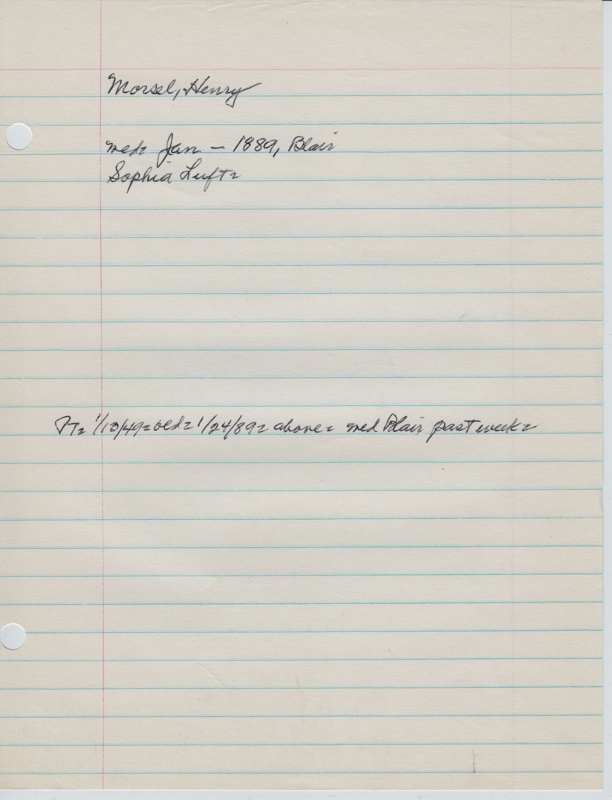 Morsel, Henry
med: Jan - 1889, Blair
Sophia Luft=
1/13/49= 1/24/89= above= med Blair past week=